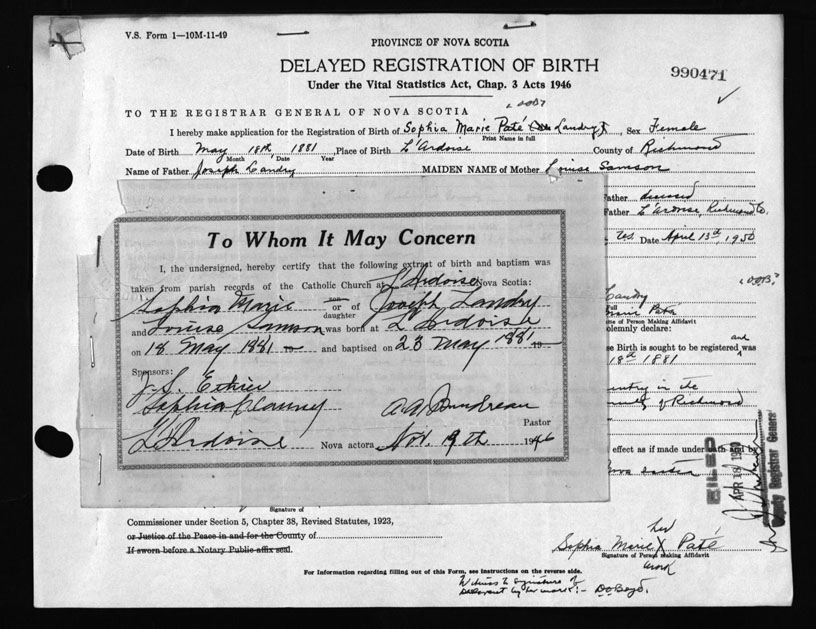 V.S. Form 1—10M-11-49
PROVINCE OF NOVA SCOTIA
DELAYED REGISTRATION OF BIRTH
Under the Vital Statistics Act, Chap. 3 Acts 1946
990471
TO THE REGISTRAR GENERAL OF NOVA SCOTIA
I hereby make application for the Registration of Birth of Sophia Marie Paté (Landry), Sex Female
Print Name in full
Date of Birth May 18th, 1881, Place of Birth L'Ardoise County of Richmond
Month Date Year
Name of Father Joseph Landry MAIDEN NAME of Mother Louise Samson
Father deceased
Father L'Ardoise, Richmond Co.
Date April 13th, 1950
To Whom It May Concern
I, the undersigned, hereby certify that the following extract of birth and baptism was
taken from parish records of the Catholic Church at L'Ardoise Nova Scotia:
Sophia Marie son or daughter of Joseph Landry
and Louise Samson was born at L'Ardoise
on 18 May 1881 19 and baptised on 23 May 1881 19
Sponsors:
Sophia
Pastor
L'Ardoise Nova actora Nov. 9th 1946
Landry
Name of Person Making Affidavit
solemnly declare:
se Birth is sought to be registered was and
18th 1881
country in the
county of Richmond
effect as if made under oath and by
Nova Scotia
FILED
APR 18 1950
Deputy Registrar General
Signature of
Commissioner under Section 5, Chapter 38, Revised Statutes, 1923,
or Justice of the Peace in and for the County of
If sworn before a Notary Public affix seal.
her
Sophia Marie X Paté
Signature of Person making Affidavit
mark
For Information regarding filling out of this Form, see instructions on the reverse side.
Witness to signature of
Declarant by her mark:- D.O. Boyd.